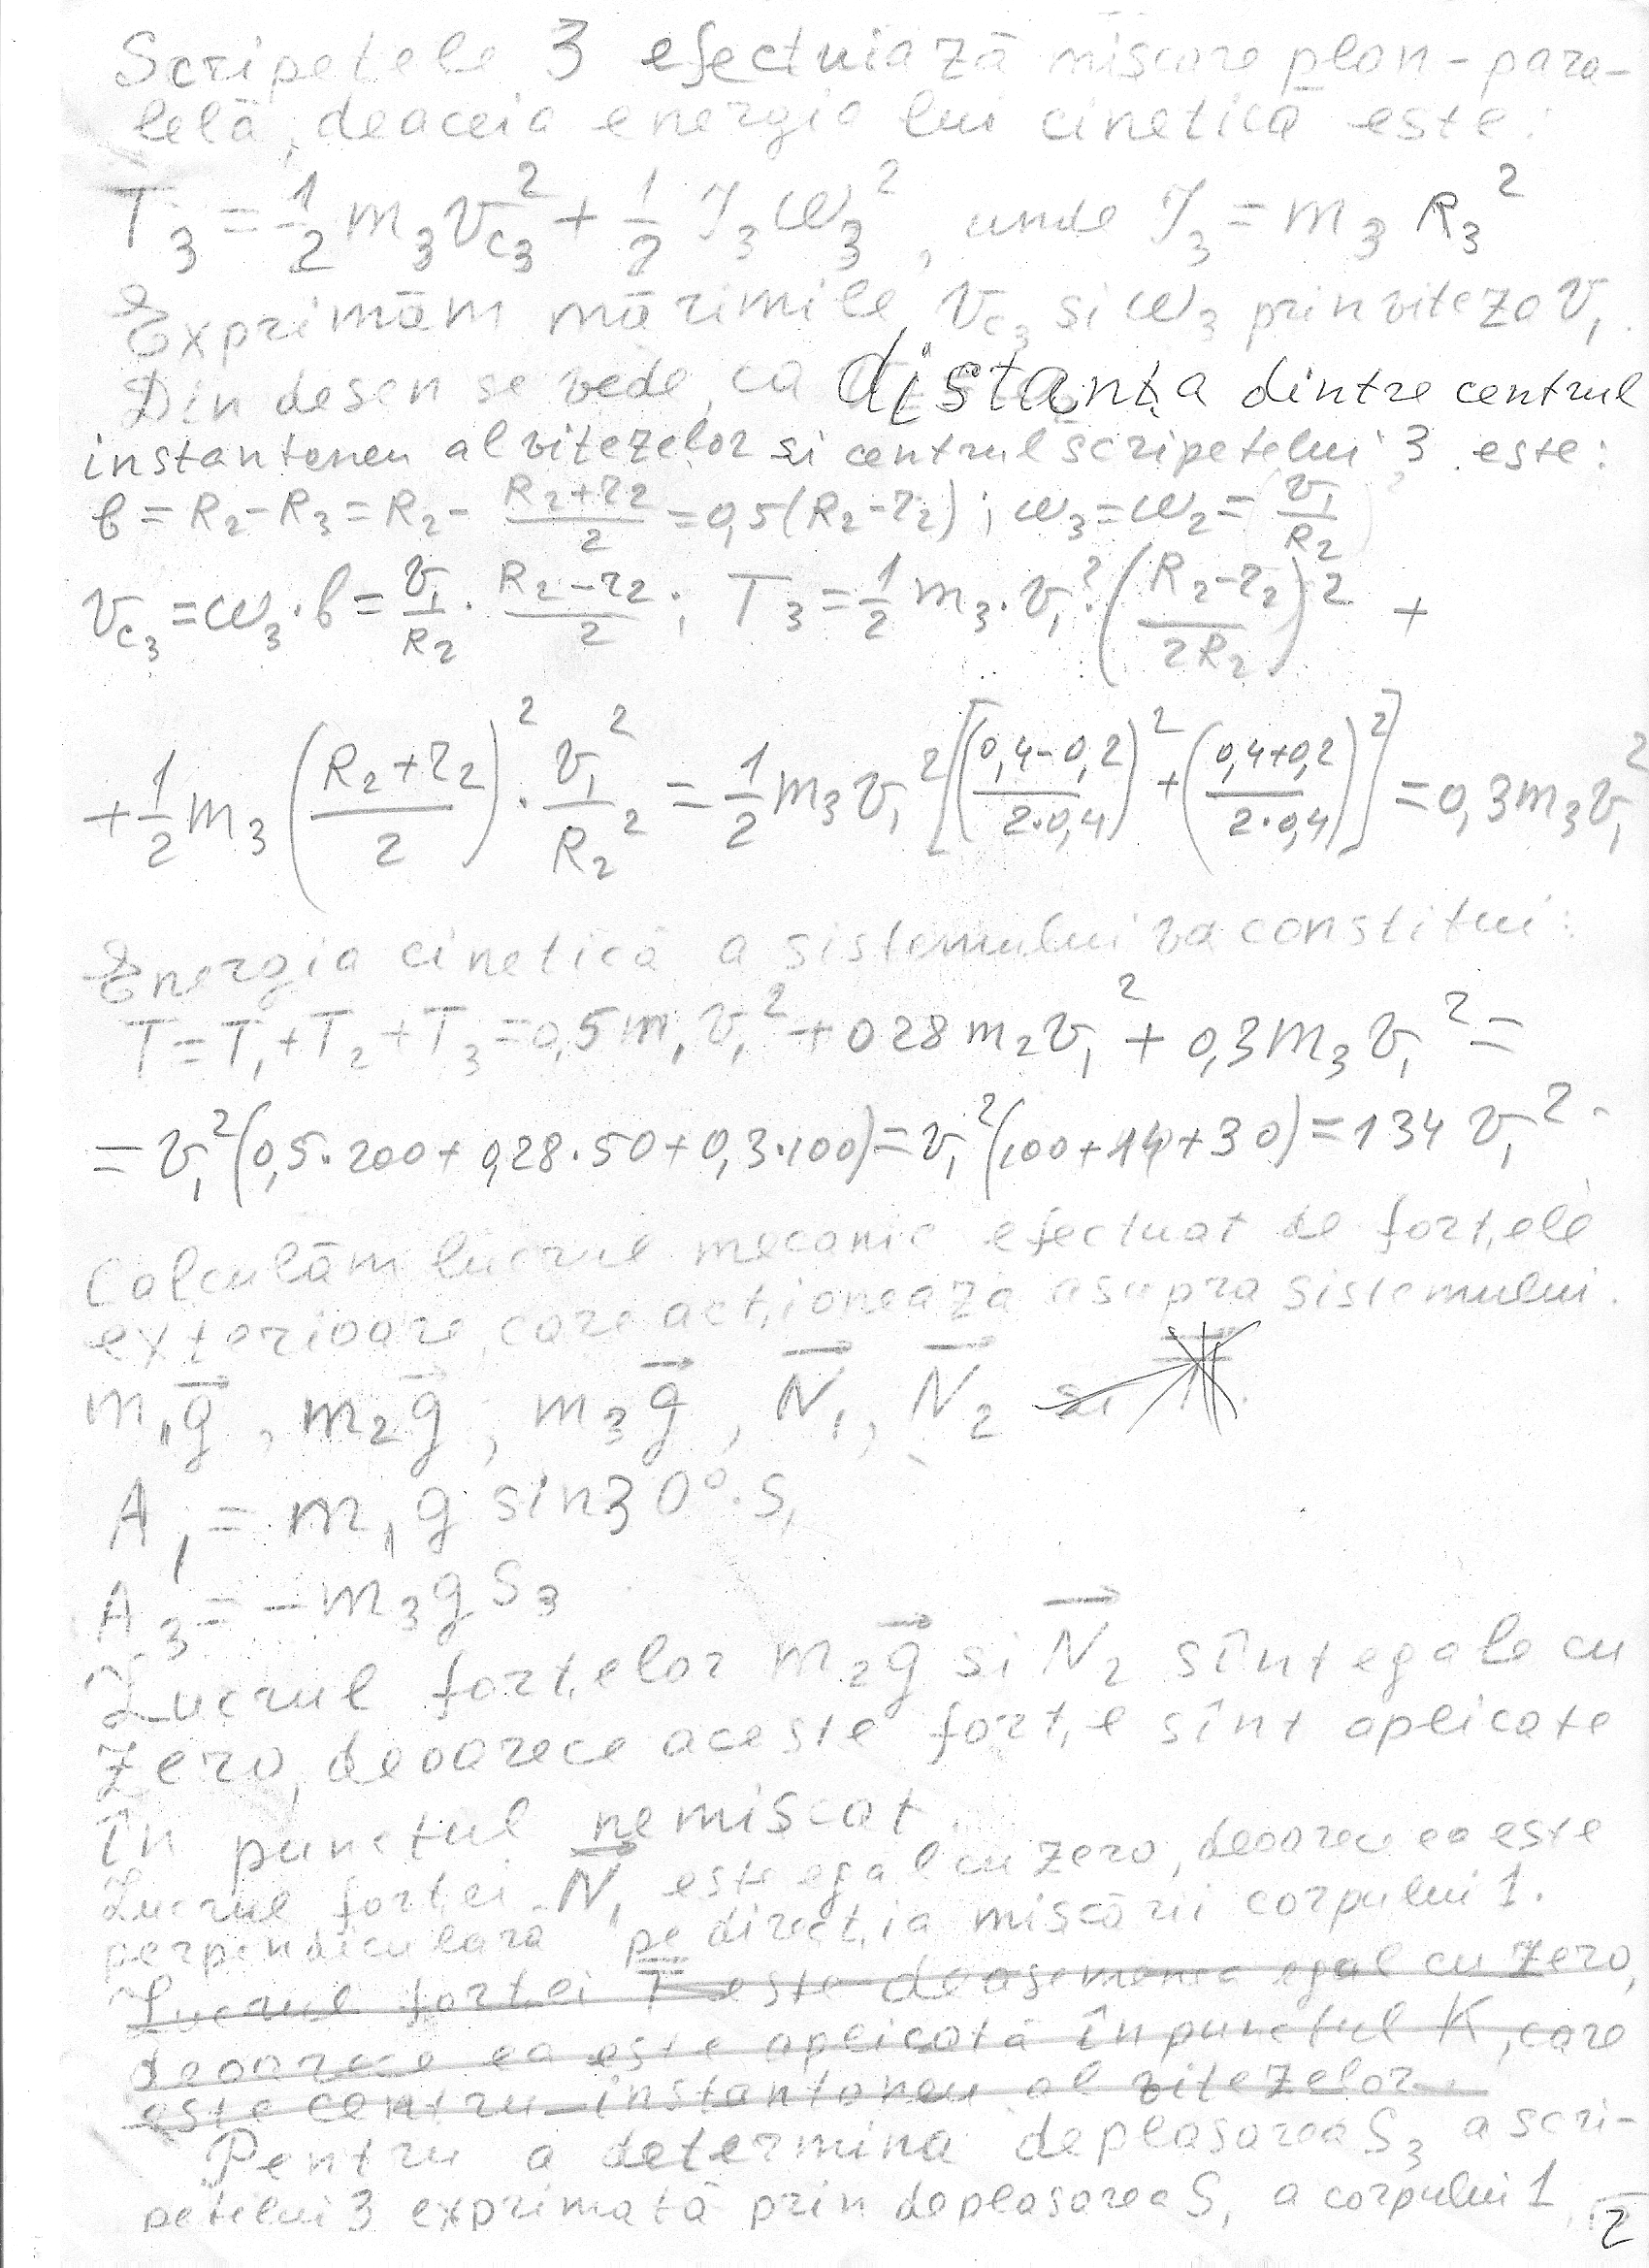 Scripetele 3 efectuiază mișcare plan-para-
lelă, deaceia energia lui cinetică este:
T₃ = 1/2 m₃ v_c₃² + 1/2 J₃ ω₃², unde J₃ = m₃ R₃²
Exprimăm mărimile v_c₃ și ω₃ prin viteza v₁.
Din desen se vede, ca distanța dintre centrul
instantaneu al vitezelor si centrul scripetelui 3 este:
b = R₂ - R₃ = R₂ - (R₂+r₂)/2 = 0,5(R₂-r₂) ; ω₃ = ω₂ = v₁/R₂
v_c₃ = ω₃·b = v₁/R₂ · (R₂-r₂)/2 ; T₃ = 1/2 m₃·v₁²·((R₂-r₂)/2R₂)² +
+ 1/2 m₃ ((R₂+r₂)/2)² · v₁²/R₂² = 1/2 m₃ v₁² [((0,4-0,2)/2·0,4)² + ((0,4+0,2)/2·0,4)²] = 0,3 m₃ v₁²
Energia cinetică a sistemului va constitui:
T = T₁ + T₂ + T₃ = 0,5 m₁ v₁² + 0 28 m₂ v₁² + 0,3 m₃ v₁² =
= v₁² (0,5·200 + 0,28·50 + 0,3·100) = v₁² (100 + 14 + 30) = 134 v₁².
Calculăm lucrul mecanic efectuat de forțele
exterioare, care acționează asupra sistemului.
m₁g⃗, m₂g⃗, m₃g⃗, N⃗₁, N⃗₂ si
A₁ = m₁ g sin30°·S₁
A₃ = -m₃ g S₃
Lucrul forțelor m₂g⃗ si N⃗₂ sînt egale cu
zero, deoarece aceste forțe sînt aplicate
în punctul nemiscat.
Lucrul forței N⃗₁ este egal cu zero, deoarece ea este
perpendiculară pe direcția miscării corpului 1.
Lucrul forței T⃗ este deasemenea egal cu zero,
deoarece ea este aplicată în punctul K, care
este centru instantaneu al vitezelor.
Pentru a determina deplasarea S₃ a scri-
petelui 3 exprimată prin deplasarea S₁ a corpului 1,
2